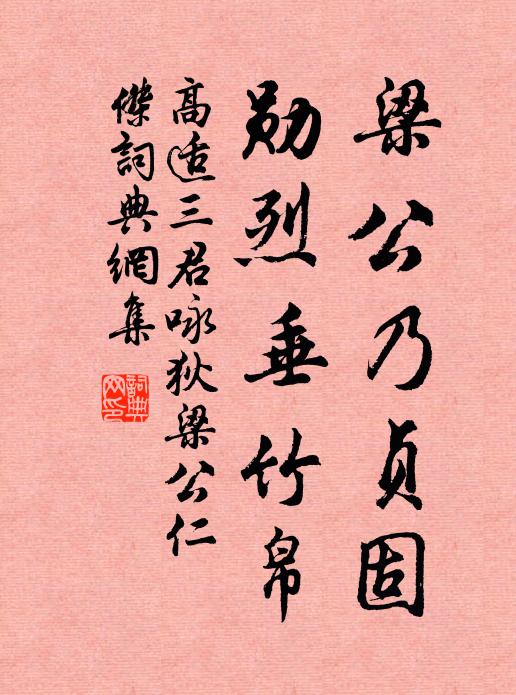 梁公乃貞固
勛烈垂竹帛
高适三君咏狄梁公仁
傑詞典網集
詞典
网印